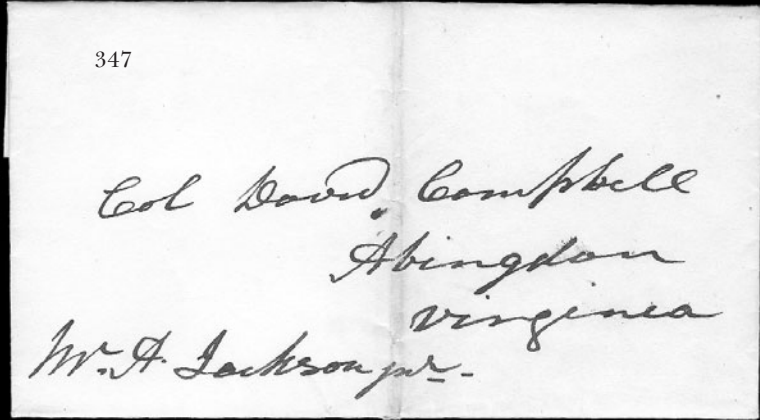 347
Col David Campbell
Abingdon
Virginia
Mr. A. Jackson jnr.